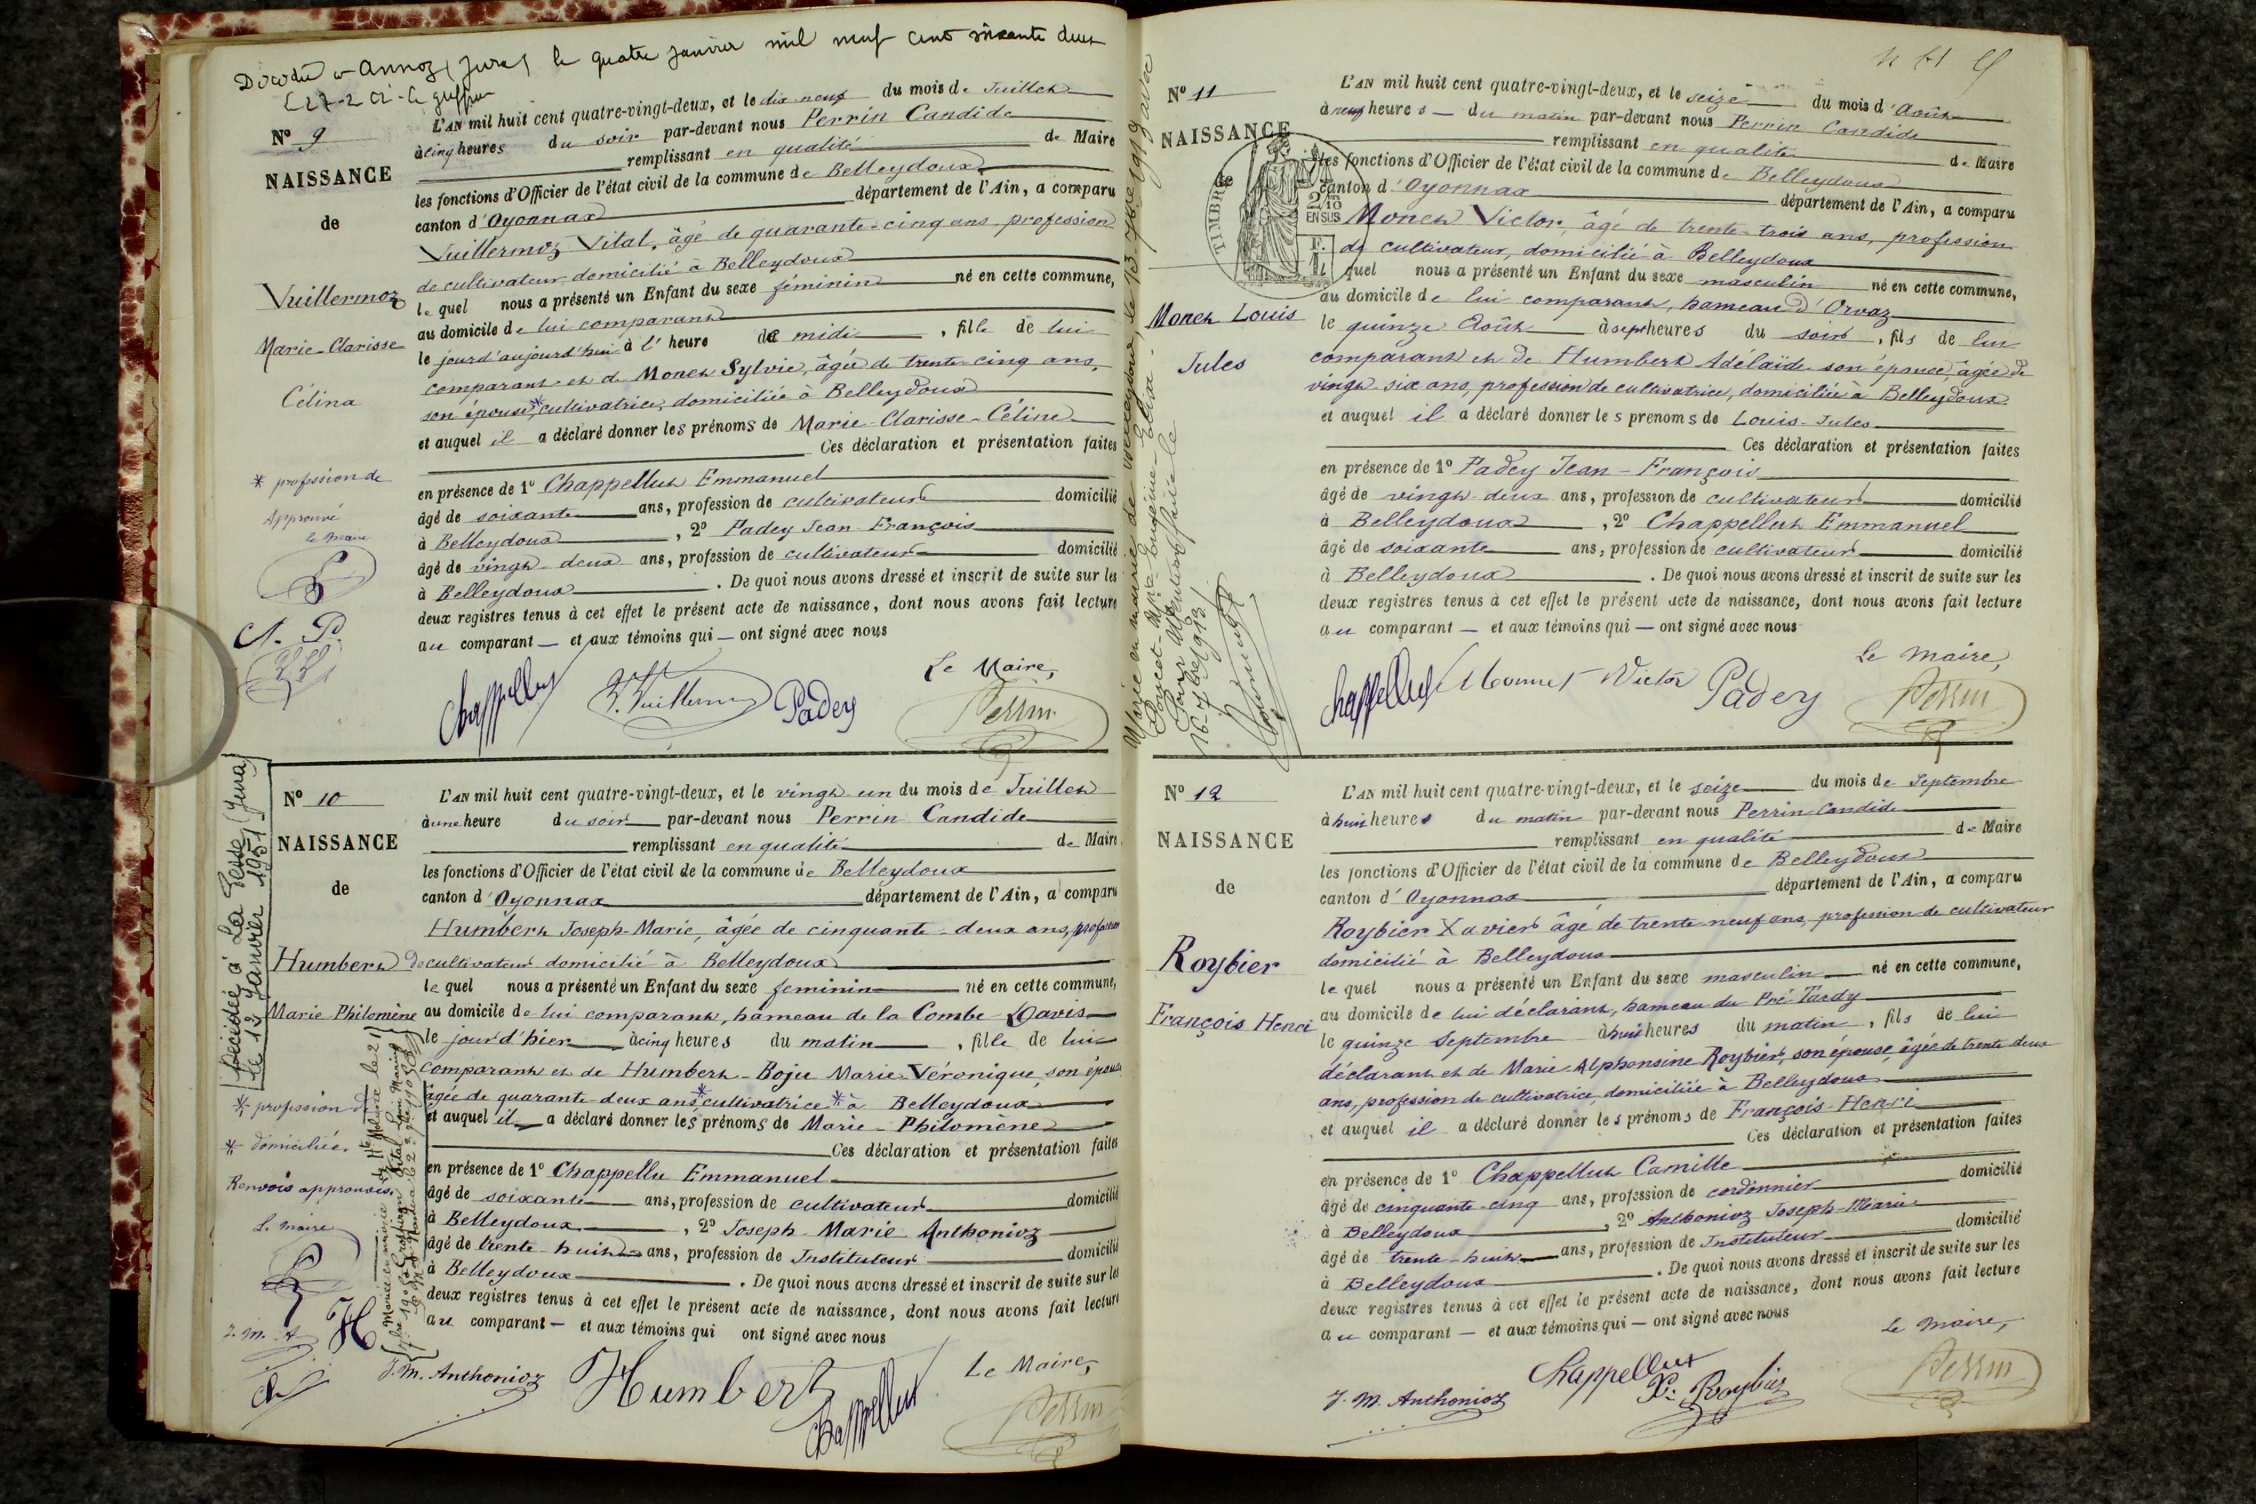 Décédée à Annoz (Jura) le quatre janvier mil neuf cent soixante deux
Le greffier
N° 9
NAISSANCE
de
Vuillermoz
Marie-Clarisse
Célina
* profession de
Approuvé
le Maire
L'AN mil huit cent quatre-vingt-deux, et le dix neuf du mois de Juillet
à cinq heures du soir par-devant nous Perrin Candide
remplissant en qualité de Maire
les fonctions d'Officier de l'état civil de la commune de Belleydoux
canton d'Oyonnax département de l'Ain, a comparu
Vuillermoz Vital, âgé de quarante-cinq ans profession
de cultivateur domicilié à Belleydoux
le quel nous a présenté un Enfant du sexe féminin né en cette commune,
au domicile de lui comparant
le jourd'aujourd'hui à l' heure de midi , fille de lui
comparant et de Monet Sylvie, âgée de trente-cinq ans,
son épouse,* cultivatrice, domiciliée à Belleydoux
et auquel il a déclaré donner les prénoms de Marie-Clarisse-Céline
Ces déclaration et présentation faites
en présence de 1° Chappellut Emmanuel
âgé de soixante ans, profession de cultivateur domicilié
à Belleydoux , 2° Padey Jean François
âgé de vingt-deux ans, profession de cultivateur domicilié
à Belleydoux . De quoi nous avons dressé et inscrit de suite sur les
deux registres tenus à cet effet le présent acte de naissance, dont nous avons fait lecture
au comparant — et aux témoins qui — ont signé avec nous
Le Maire,
Chappellut V. Vuillermoz Padey Perrin
Décédée à La Pesse (Jura)
le 12 Janvier 1951
N° 10
NAISSANCE
de
Humbert
Marie Philomène
* profession de
* domiciliée.
Renvois approuvés.
Le maire
J. M. A H
L'AN mil huit cent quatre-vingt-deux, et le vingt un du mois de Juillet
à une heure du soir par-devant nous Perrin Candide
remplissant en qualité de Maire
les fonctions d'Officier de l'état civil de la commune de Belleydoux
canton d'Oyonnax département de l'Ain, a comparu
Humbert Joseph-Marie, âgée de cinquante-deux ans, profession
de cultivateur domicilié à Belleydoux
le quel nous a présenté un Enfant du sexe feminin né en cette commune,
au domicile de lui comparant, hameau de la Combe-Davis
le jour d'hier à cinq heures du matin , fille de lui
comparant et de Humbert-Boju Marie Véronique, son épouse
âgée de quarante-deux ans,* cultivatrice * à Belleydoux
et auquel il a déclaré donner les prénoms de Marie-Philomène
Ces déclaration et présentation faites
en présence de 1° Chappellu Emmanuel
âgé de soixante ans, profession de cultivateur domicilié
à Belleydoux , 2° Joseph-Marie Anthonioz
âgé de trente-huit ans, profession de Instituteur domicilié
à Belleydoux . De quoi nous avons dressé et inscrit de suite sur les
deux registres tenus à cet effet le présent acte de naissance, dont nous avons fait lecture
au comparant — et aux témoins qui ont signé avec nous
Le Maire,
J. M. Anthonioz Humbert Chappellut Perrin
N° 11
NAISSANCE
de
Monet Louis
Jules
TIMBRE
2/10
EN SUS
Marié en mairie de Belleydoux le 13 7bre 1919 avec
Poncet Eugénie-
16-7bre 1919
L'AN mil huit cent quatre-vingt-deux, et le seize du mois d'Août
à neuf heures — du matin par-devant nous Perrin Candide
remplissant en qualité de Maire
les fonctions d'Officier de l'état civil de la commune de Belleydoux
canton d'Oyonnax département de l'Ain, a comparu
Monet Victor, âgé de trente-trois ans, profession
de cultivateur, domicilié à Belleydoux
le quel nous a présenté un Enfant du sexe masculin né en cette commune,
au domicile de lui comparant, hameau d'Orvaz
le quinze Août à sept heures du soir , fils de lui
comparant et de Humbert Adélaïde son épouse, âgée de
vingt-six ans, profession de cultivatrice, domiciliée à Belleydoux
et auquel il a déclaré donner les prénoms de Louis-Jules
Ces déclaration et présentation faites
en présence de 1° Padey Jean-François
âgé de vingt-deux ans, profession de cultivateur domicilié
à Belleydoux , 2° Chappellut Emmanuel
âgé de soixante ans, profession de cultivateur domicilié
à Belleydoux . De quoi nous avons dressé et inscrit de suite sur les
deux registres tenus à cet effet le présent acte de naissance, dont nous avons fait lecture
au comparant — et aux témoins qui — ont signé avec nous
Le Maire,
Chappellut Monnet Victor Padey Perrin
N° 12
NAISSANCE
de
Roybier
François Henri
L'AN mil huit cent quatre-vingt-deux, et le seize du mois de Septembre
à huit heures du matin par-devant nous Perrin Candide
remplissant en qualité de Maire
les fonctions d'Officier de l'état civil de la commune de Belleydoux
canton d'Oyonnax département de l'Ain, a comparu
Roybier Xavier âgé de trente-neuf ans, profession de cultivateur
domicilié à Belleydoux
le quel nous a présenté un Enfant du sexe masculin né en cette commune,
au domicile de lui déclarant, hameau du Pré-Tardy
le quinze Septembre à huit heures du matin , fils de lui
déclarant et de Marie-Alphonsine Roybier, son épouse, âgée de trente deux
ans, profession de cultivatrice, domiciliée à Belleydoux
et auquel il a déclaré donner les prénoms de François-Henri
Ces déclaration et présentation faites
en présence de 1° Chappellut Camille
âgé de cinquante-cinq ans, profession de cordonnier domicilié
à Belleydoux , 2° Anthonioz Joseph-Marie
âgé de trente-huit ans, profession de Instituteur domicilié
à Belleydoux . De quoi nous avons dressé et inscrit de suite sur les
deux registres tenus à cet effet le présent acte de naissance, dont nous avons fait lecture
au comparant — et aux témoins qui — ont signé avec nous
Le Maire,
J. M. Anthonioz Chappellut X. Roybier Perrin